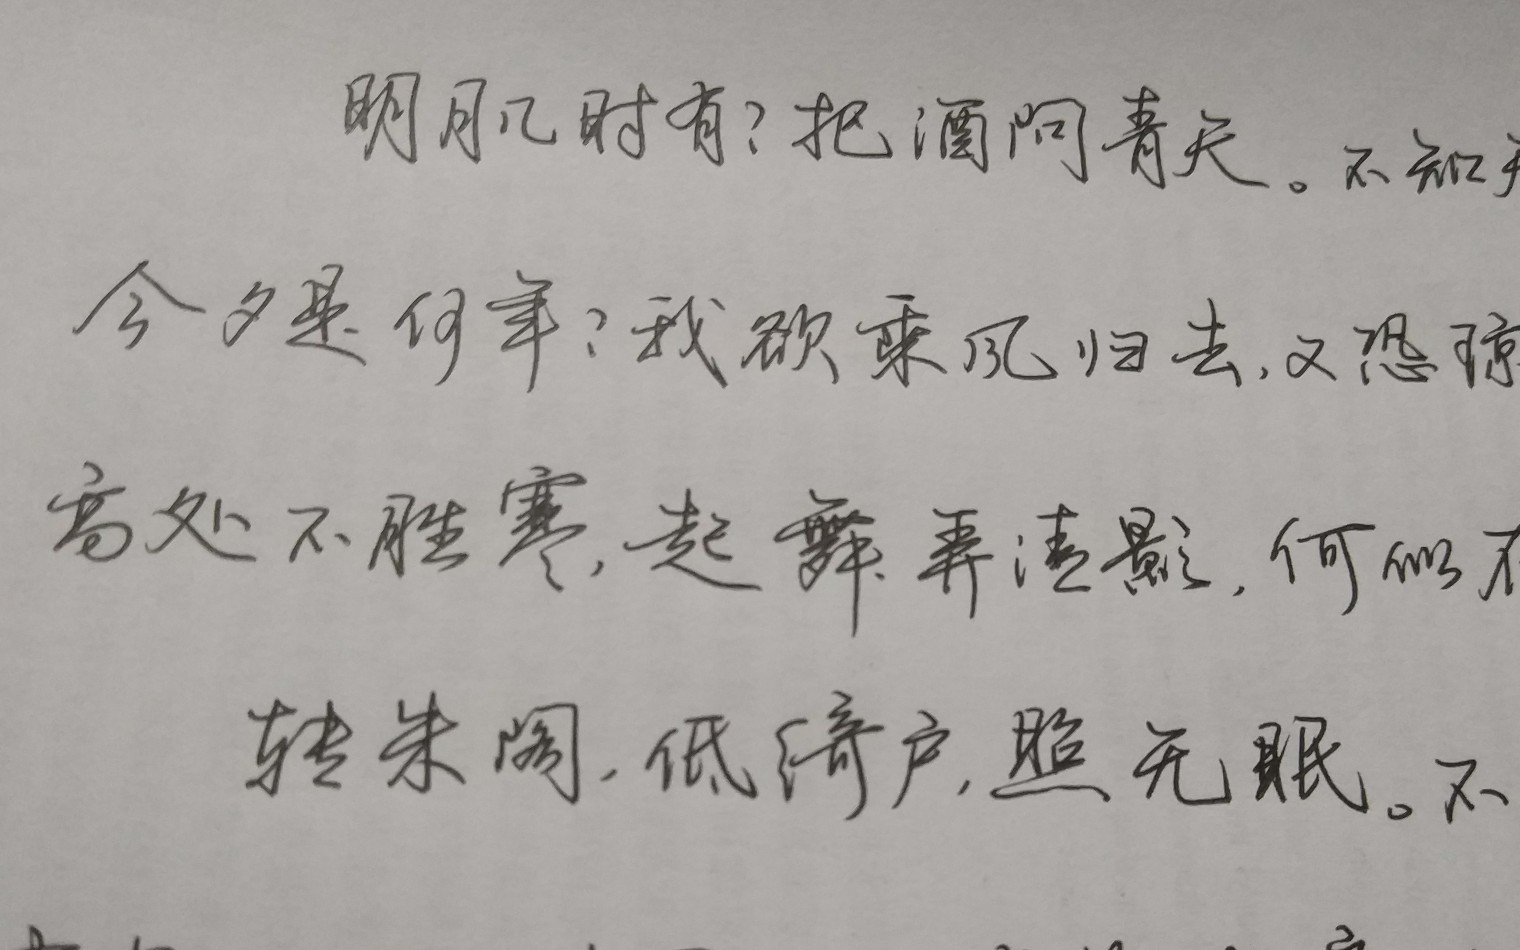 明月几时有？把酒问青天。不知天
今夕是何年？我欲乘风归去，又恐琼
高处不胜寒，起舞弄清影，何似在
转朱阁，低绮户，照无眠。不